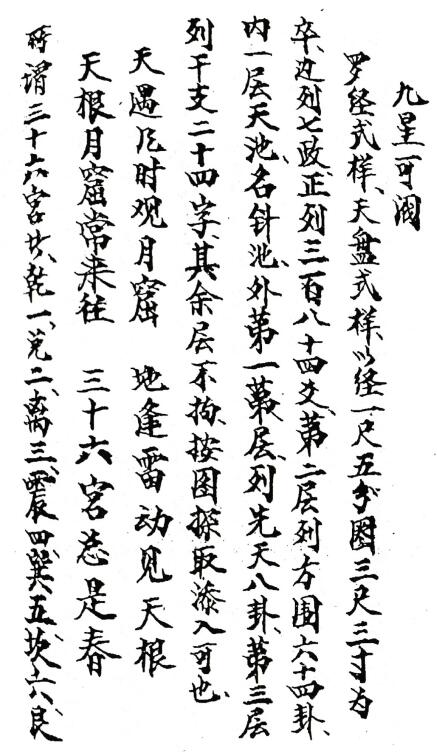 九星可阅
罗经式样、天盘式样、以经一尺五分圈三尺三寸为
卒、边列七政、正列三百八十四爻、第二层列方围六十四卦、
内一层天池、名针池、外第一第层、列先天八卦、第三层
列干支二十四字、其余层不拘、按图探取添入可也、
天遇凡时观月窟 地逢雷动见天根
天根月窟常来往 三十六宫总是春
所谓三十六宫廿、乾一、兑二、离三、震四、巽五、坎六、艮